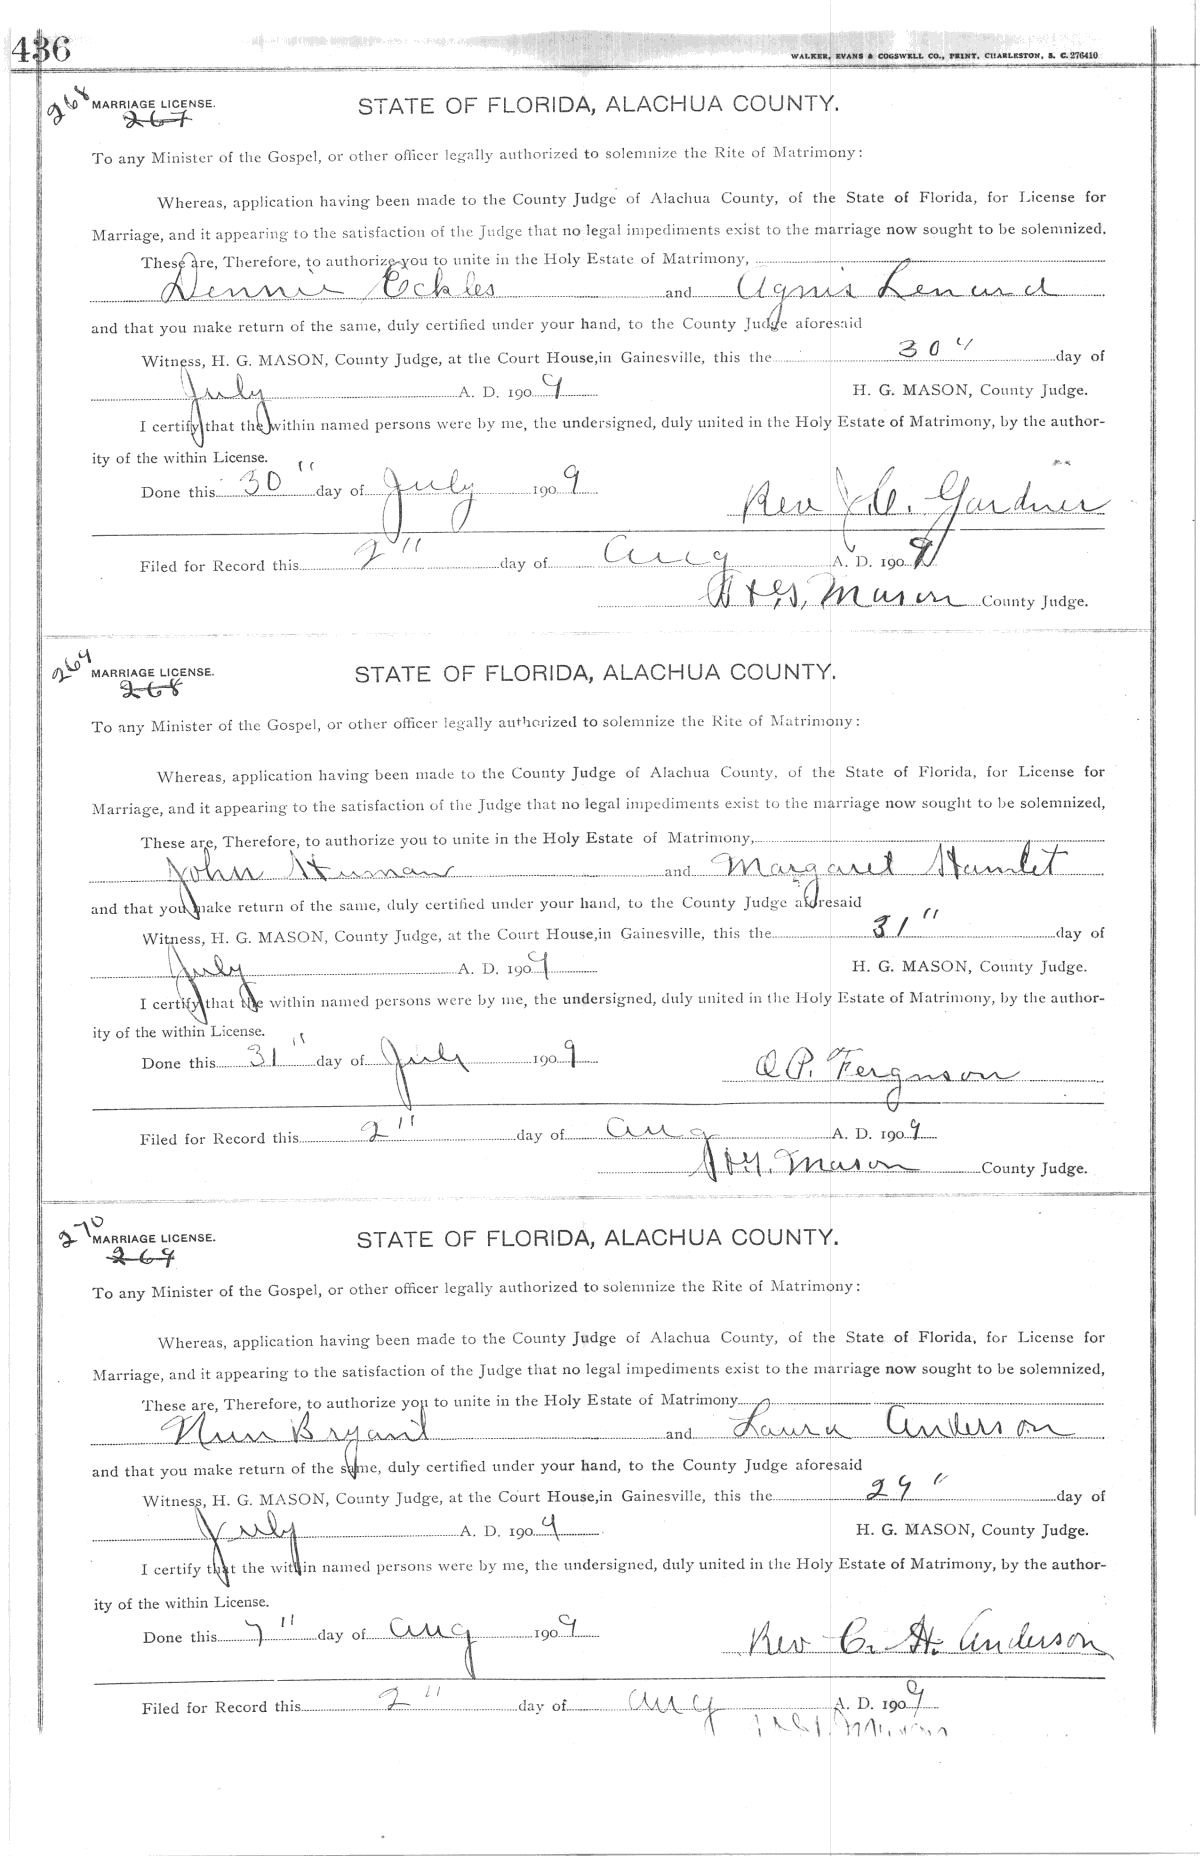 436
WALKER, EVANS & COGSWELL CO., PRINT, CHARLESTON, S. C. 276410
268 MARRIAGE LICENSE. STATE OF FLORIDA, ALACHUA COUNTY.
267
To any Minister of the Gospel, or other officer legally authorized to solemnize the Rite of Matrimony:
Whereas, application having been made to the County Judge of Alachua County, of the State of Florida, for License for
Marriage, and it appearing to the satisfaction of the Judge that no legal impediments exist to the marriage now sought to be solemnized,
These are, Therefore, to authorize you to unite in the Holy Estate of Matrimony,
Dennie Eckles and Agnis Lenard
and that you make return of the same, duly certified under your hand, to the County Judge aforesaid
Witness, H. G. MASON, County Judge, at the Court House, in Gainesville, this the 30" day of
July A. D. 1909 H. G. MASON, County Judge.
I certify that the within named persons were by me, the undersigned, duly united in the Holy Estate of Matrimony, by the author-
ity of the within License.
Done this 30" day of July 1909
Rev J. C. Gardner
Filed for Record this 2" day of Aug A. D. 1909
H. G. Mason County Judge.
269 MARRIAGE LICENSE. STATE OF FLORIDA, ALACHUA COUNTY.
268
To any Minister of the Gospel, or other officer legally authorized to solemnize the Rite of Matrimony:
Whereas, application having been made to the County Judge of Alachua County, of the State of Florida, for License for
Marriage, and it appearing to the satisfaction of the Judge that no legal impediments exist to the marriage now sought to be solemnized,
These are, Therefore, to authorize you to unite in the Holy Estate of Matrimony,
John Human and Margaret Hamlet
and that you make return of the same, duly certified under your hand, to the County Judge aforesaid
Witness, H. G. MASON, County Judge, at the Court House, in Gainesville, this the 31" day of
July A. D. 1909 H. G. MASON, County Judge.
I certify that the within named persons were by me, the undersigned, duly united in the Holy Estate of Matrimony, by the author-
ity of the within License.
Done this 31" day of July 1909
O P. Ferguson
Filed for Record this 2" day of Aug A. D. 1909
H. G. Mason County Judge.
270 MARRIAGE LICENSE. STATE OF FLORIDA, ALACHUA COUNTY.
269
To any Minister of the Gospel, or other officer legally authorized to solemnize the Rite of Matrimony:
Whereas, application having been made to the County Judge of Alachua County, of the State of Florida, for License for
Marriage, and it appearing to the satisfaction of the Judge that no legal impediments exist to the marriage now sought to be solemnized,
These are, Therefore, to authorize you to unite in the Holy Estate of Matrimony
Nun Bryant and Laura Anderson
and that you make return of the same, duly certified under your hand, to the County Judge aforesaid
Witness, H. G. MASON, County Judge, at the Court House, in Gainesville, this the 29" day of
July A. D. 1909 H. G. MASON, County Judge.
I certify that the within named persons were by me, the undersigned, duly united in the Holy Estate of Matrimony, by the author-
ity of the within License.
Done this 7" day of Aug 1909
Rev C. H. Anderson
Filed for Record this 2" day of Aug A. D. 1909
H. G. Mason